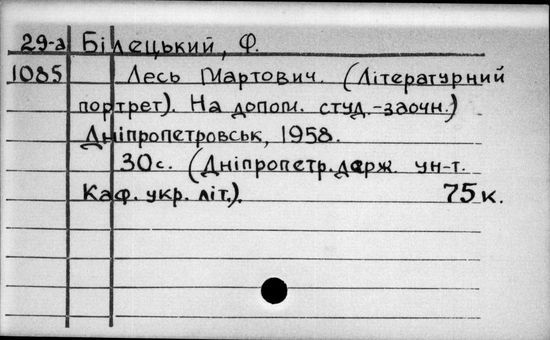 29-а Білецький, Ф.
1085 Лесь Мартович. (Літературний
портрет). На допом. студ.-заочн.)
Дніпропетровськ, 1958.
30с. (Дніпропетр. держ. ун-т.
Каф. укр. літ.). 75 к.